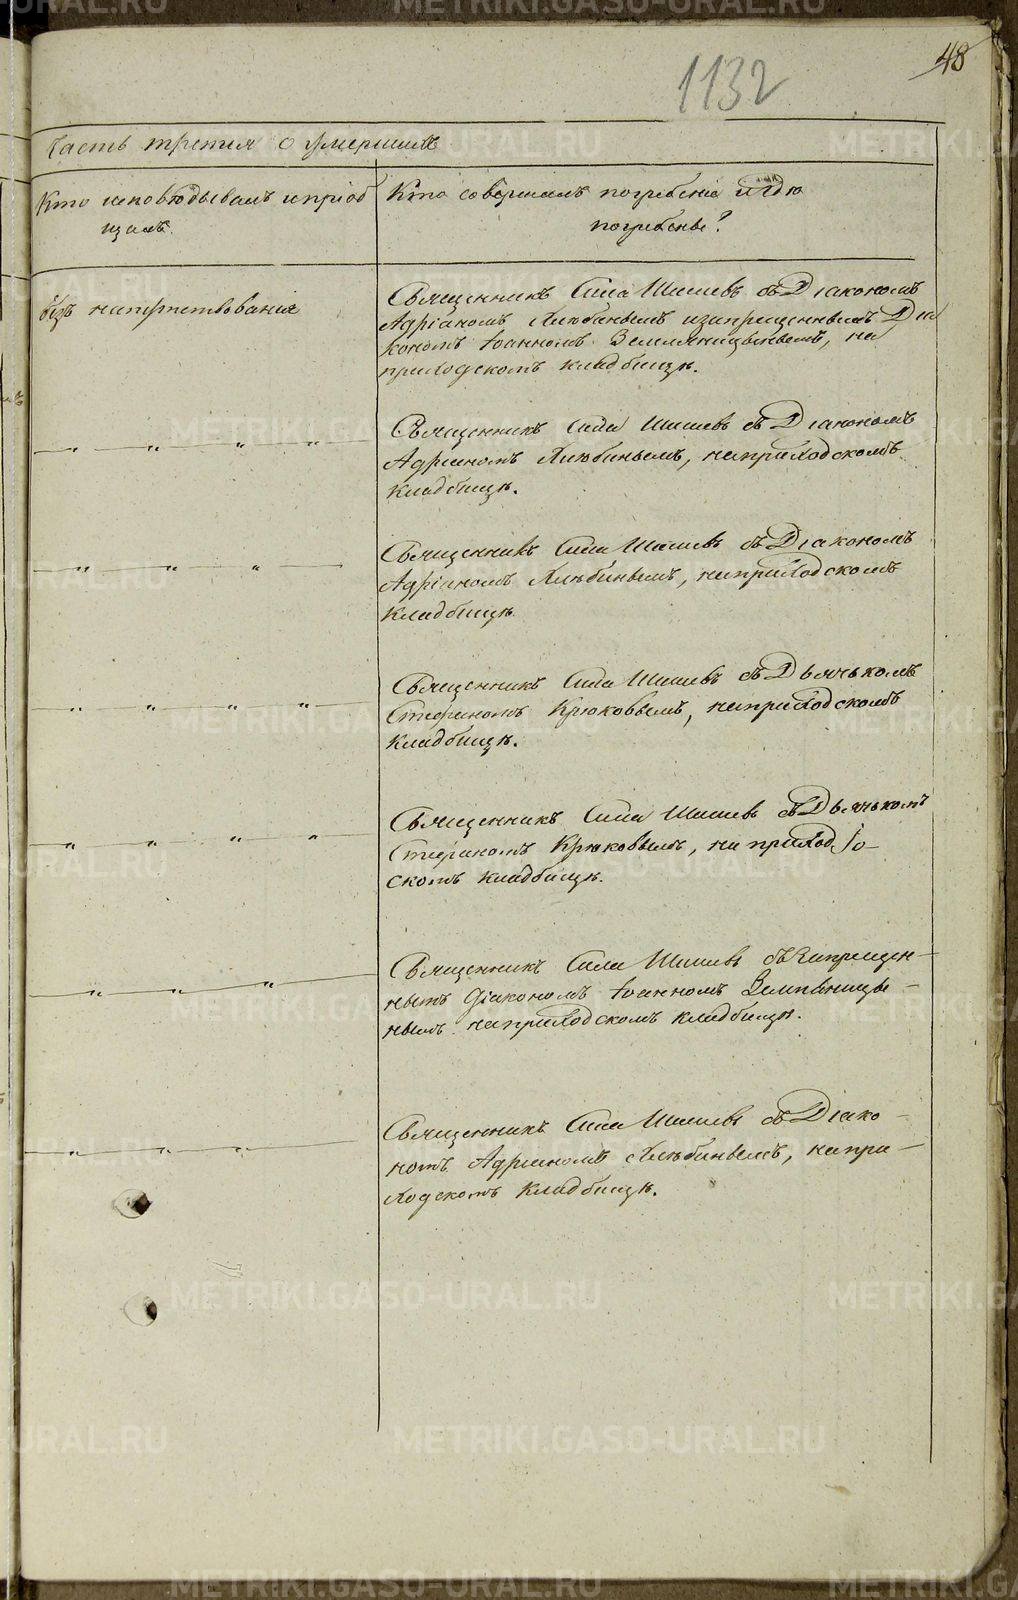 48
1132
Часть третия о умершихъ
Кто исповѣдывалъ и пріоб
щалъ.
Кто совершалъ погребеніе и гдѣ
погребены?
безъ напутствованія
Священникъ Сила Шишевъ съ Діакономъ
Адріаномъ и запрещеннымъ Діа
кономъ Іоанномъ Земляницынымъ, на
приходскомъ кладбищѣ.
Священникъ Сила Шишевъ съ Діакономъ
Адріаномъ, на приходскомъ
кладбищѣ.
Священникъ Сила Шишевъ съ Діакономъ
Адріаномъ, на приходскомъ
кладбищѣ
Священникъ Сила Шишевъ съ Дьячькомъ
Стефаномъ Крюковымъ, на приходскомъ
кладбищѣ.
Священникъ Сила Шишевъ съ Дьячькомъ
Стефаномъ Крюковымъ, на приход
скомъ кладбищѣ.
Священникъ Сила Шишевъ съ Запрещен-
нымъ Діакономъ Іоанномъ Земляницы-
нымъ на приходскомъ кладбищѣ.
Священникъ Сила Шишевъ съ Діако-
номъ Адріаномъ, на при-
ходскомъ кладбищѣ.
METRIKI.GASO-URAL.RU